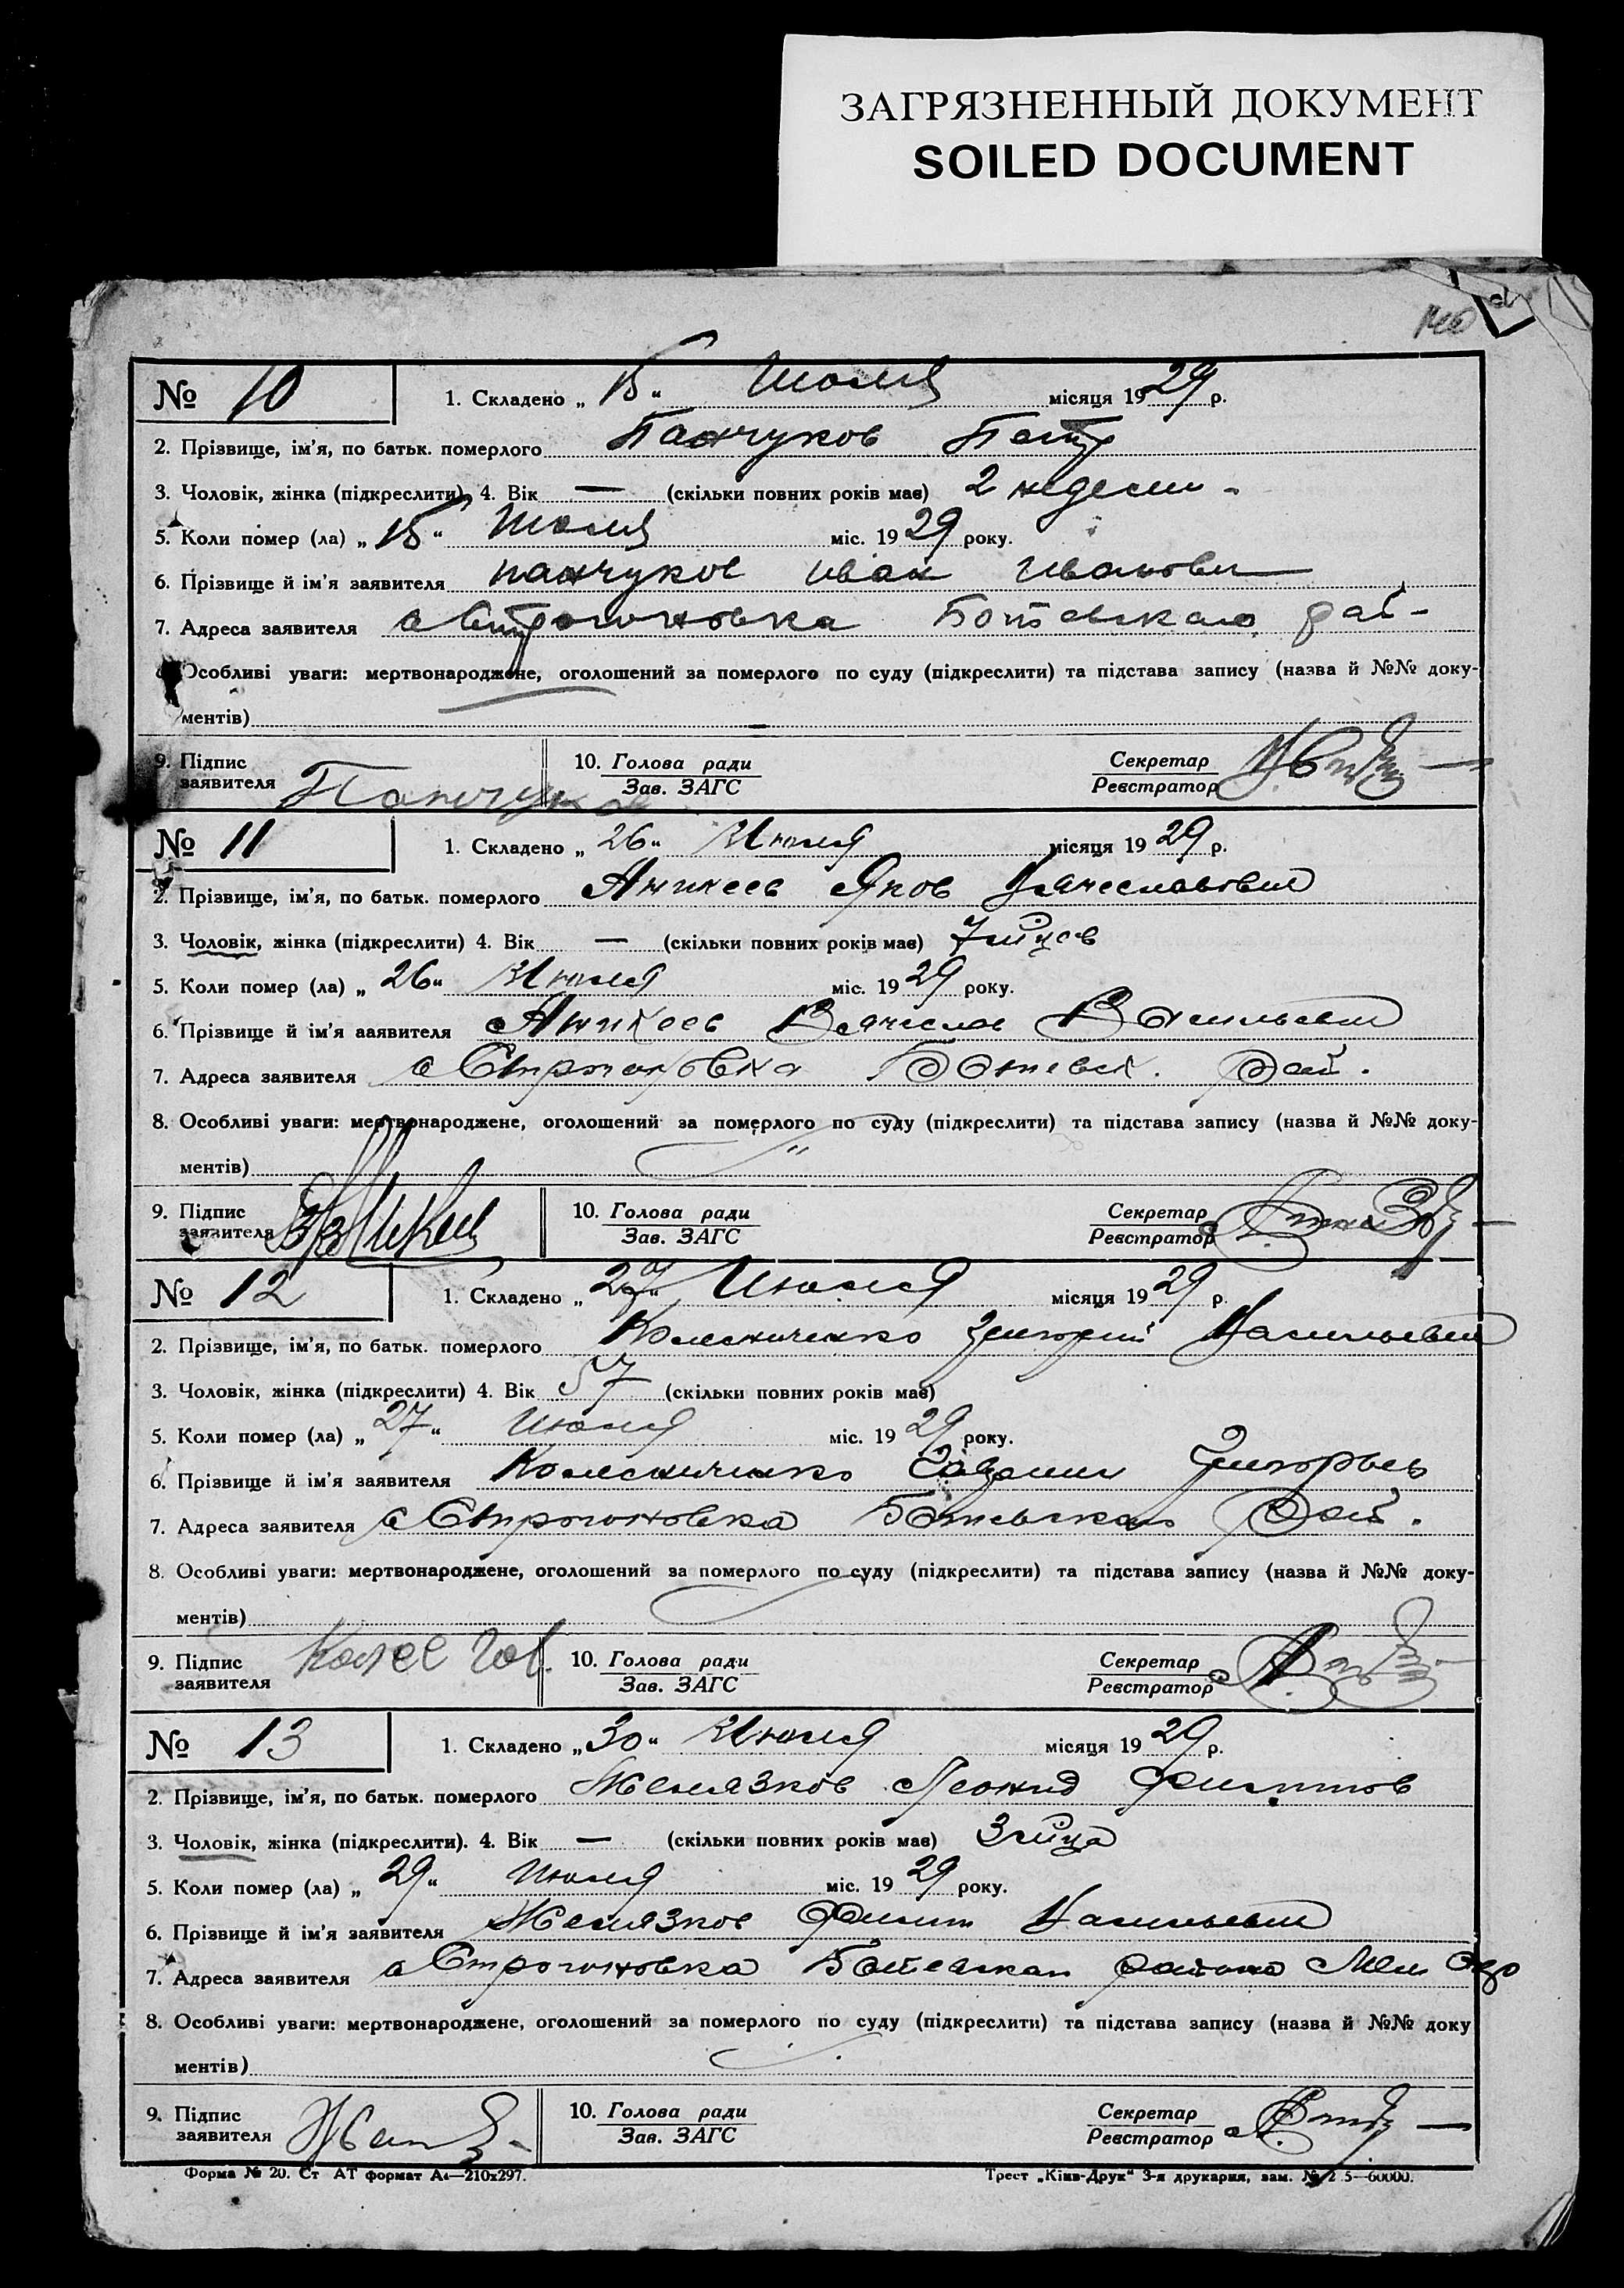 ЗАГРЯЗНЕННЫЙ ДОКУМЕНТ
SOILED DOCUMENT
№ 10 1. Складено „ 15 “ Июля місяця 1929 р.
2. Прізвище, ім'я, по батьк. померлого Панчуков Петр
3. Чоловік, жінка (підкреслити) 4. Вік — (скільки повних років має) 2 недели -
5. Коли помер (ла) „ 15 “ Июля міс. 1929 року.
6. Прізвище й ім'я заявителя панчуков иван Иванови
7. Адреса заявителя с Строгоновка Ботевскаго рай-
Особливі уваги: мертвонароджене, оголошений за померлого по суду (підкреслити) та підстава запису (назва й №№ доку-
ментів)
9. Підпис 10. Голова ради Секретар
заявителя Панчуков Зав. ЗАГС Реєстратор
№ 11 1. Складено „ 26 “ Июля місяця 1929 р.
2. Прізвище, ім'я, по батьк. померлого Аникеев Яков Вячеславович
3. Чоловік, жінка (підкреслити) 4. Вік — (скільки повних років має) 7 м-цов
5. Коли помер (ла) „ 26 “ Июля міс. 1929 року.
6. Прізвище й ім'я заявителя Аникеев Вячеслав Васильевич
7. Адреса заявителя с Строгоновка Ботевск. Рай.
8. Особливі уваги: мертвонароджене, оголошений за померлого по суду (підкреслити) та підстава запису (назва й №№ доку-
ментів)
9. Підпис 10. Голова ради Секретар
заявителя Зав. ЗАГС Реєстратор
№ 12 1. Складено „ 27 “ Июля місяця 1929 р.
2. Прізвище, ім'я, по батьк. померлого Колесниченко Григорий Васильевич
3. Чоловік, жінка (підкреслити) 4. Вік 57 (скільки повних років має)
5. Коли помер (ла) „ 27 “ Июля міс. 1929 року.
6. Прізвище й ім'я заявителя Колесниченко Григорьев
7. Адреса заявителя с Строгоновка Ботевскаго Рай.
8. Особливі уваги: мертвонароджене, оголошений за померлого по суду (підкреслити) та підстава запису (назва й №№ доку-
ментів)
9. Підпис 10. Голова ради Секретар
заявителя Зав. ЗАГС Реєстратор
№ 13 1. Складено „ 30 “ Июля місяця 1929 р.
2. Прізвище, ім'я, по батьк. померлого Желязков Леонид Филиппов
3. Чоловік, жінка (підкреслити). 4. Вік — (скільки повних років має) 3 м-ца
5. Коли помер (ла) „ 29 “ Июля міс. 1929 року.
6. Прізвище й ім'я заявителя Желязков Филип Васильевич
7. Адреса заявителя с Строгоновка Ботевскаго района Мел Окр
8. Особливі уваги: мертвонароджене, оголошений за померлого по суду (підкреслити) та підстава запису (назва й №№ доку
ментів)
9. Підпис 10. Голова ради Секретар
заявителя Зав. ЗАГС Реєстратор
Форма № 20. Ст АТ формат А4—210x297. Трест „Київ-Друк“ 3-я друкарня, зам. № 2 5—60000.